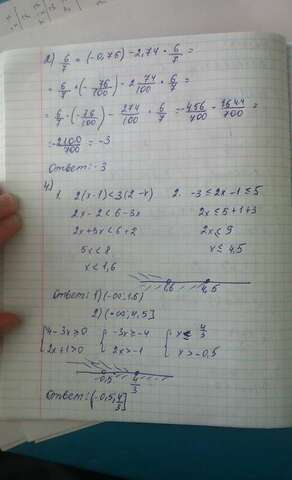 2) 6/7 * (-0,76) - 2,74 * 6/7 =
= 6/7 * (- 76/100) - 2 74/100 * 6/7 =
= 6/7 * (- 76/100) - 274/100 * 6/7 = -456/700 - 1644/700 =
= -2100/700 = -3
Ответ: -3
4)
1. 2(x-1) < 3(2-x)
2x-2 < 6-3x
2x+3x < 6+2
5x < 8
x < 1,6
2. -3 ≤ 2x-1 ≤ 5
2x ≤ 5+1+3
2x ≤ 9
x ≤ 4,5
1,6 4,5
Ответ: 1) (-∞; 1,6)
2) (-∞; 4,5]
{4-3x ≥ 0 {-3x ≥ -4 {x ≤ 4/3
{2x+1 > 0 {2x > -1 {x > -0,5
-0,5 4/3
Ответ: (-0,5; 4/3]